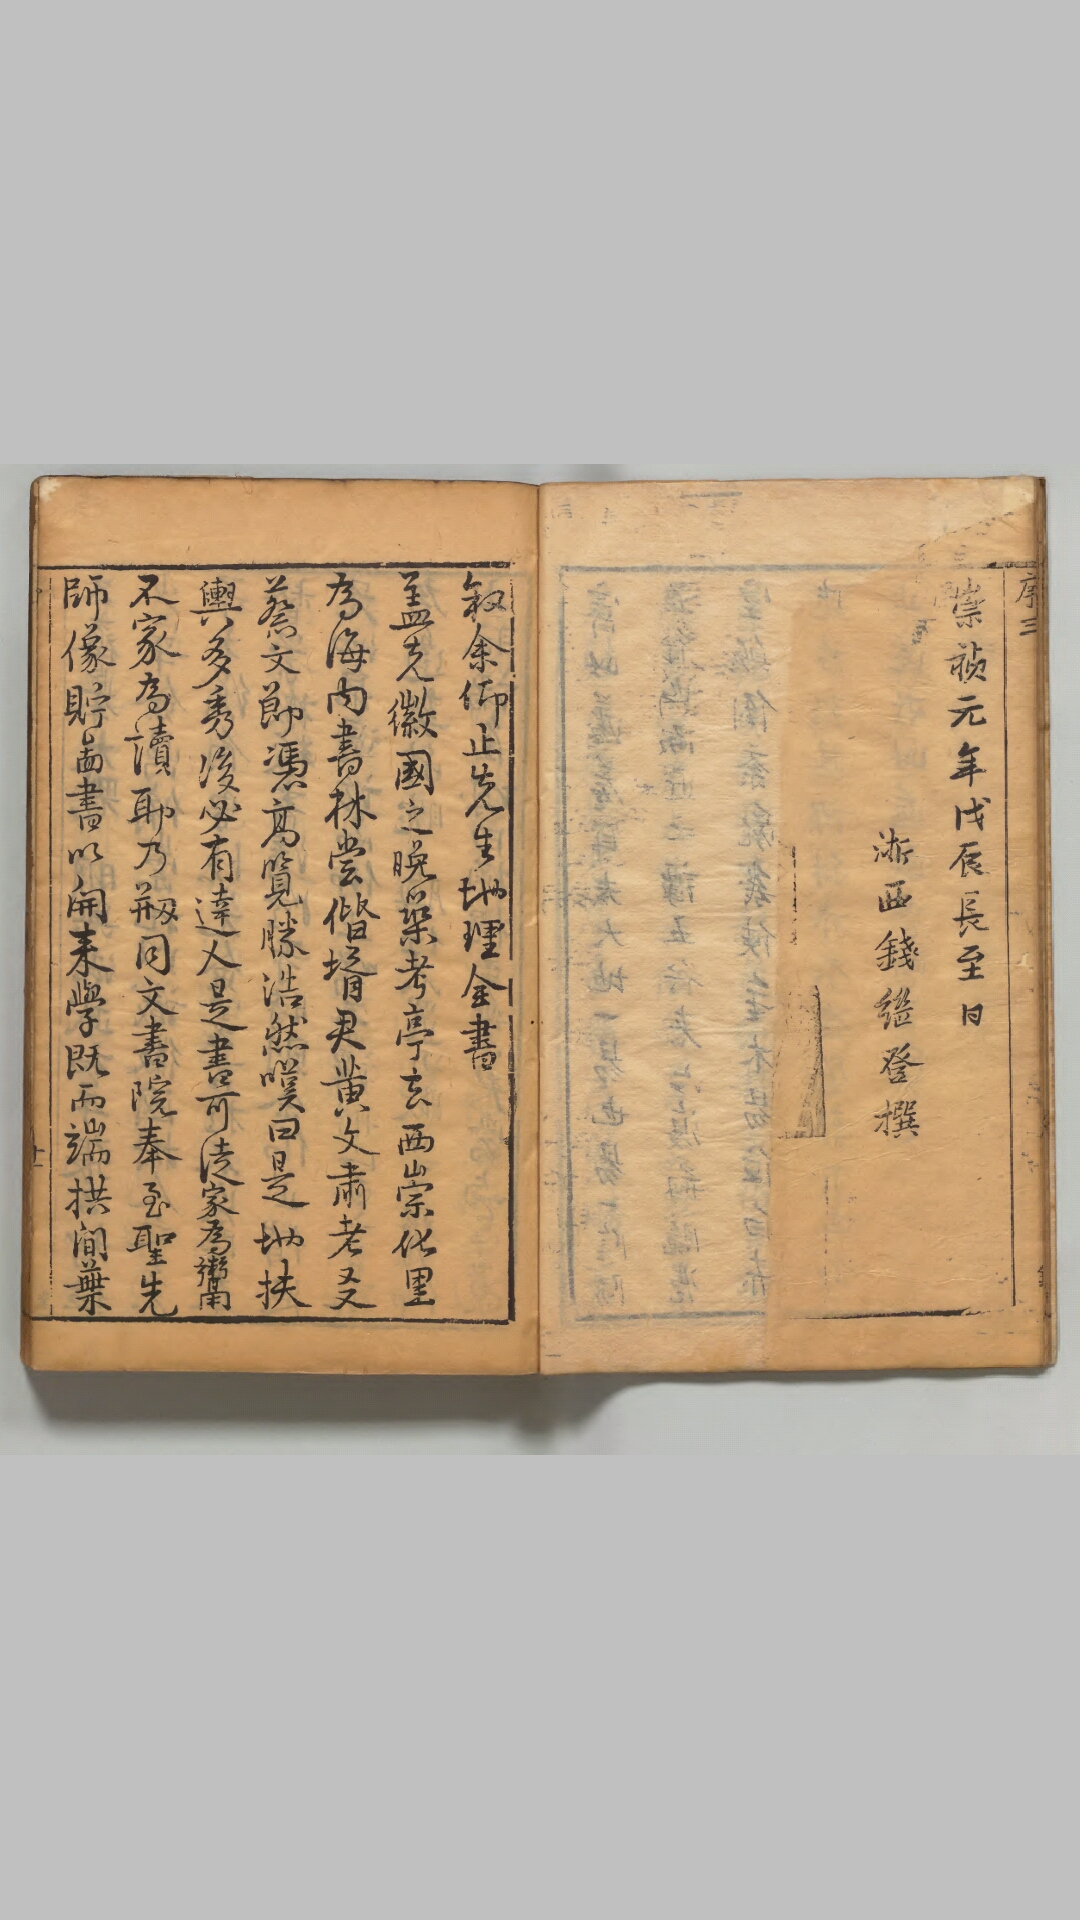 序三
崇禎元年戊辰長至日
淅西錢繼登撰
叙余仰止先生地理全書
盖先徽國之晚築考亭去西崇化里
為海内書林嘗偕壻君黄文肅考又
蔡文節馮高覽勝浩然嘆曰是地扶
輿多秀後必有達人是書可徒家為鬻
不家為讀耶乃剏同文書院奉至聖先
師像貯啚書以開来學既而端拱間葉